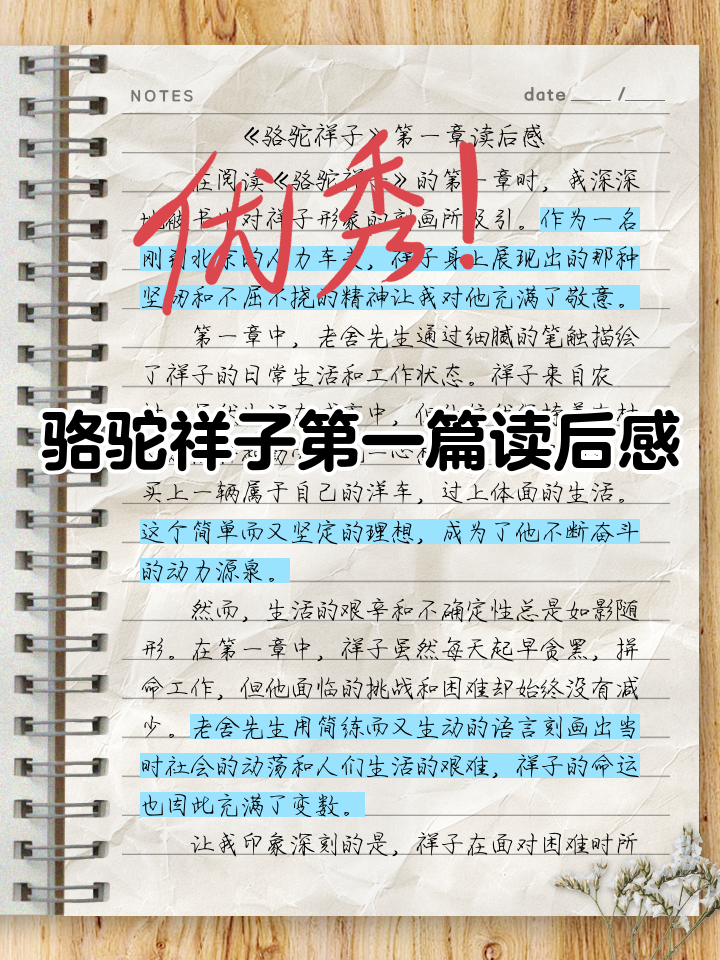 NOTES
date ____ /____
《骆驼祥子》第一章读后感
在阅读《骆驼祥子》的第一章时，我深深
对祥子形象的刻画所吸引。作为一名
刚到北京的人力车夫，祥子身上展现出的那种
坚韧和不屈不挠的精神让我对他充满了敬意。
优秀！
第一章中，老舍先生通过细腻的笔触描绘
了祥子的日常生活和工作状态。祥子来自农
骆驼祥子第一篇读后感
买上一辆属于自己的洋车，过上体面的生活。
这个简单而又坚定的理想，成为了他不断奋斗
的动力源泉。
然而，生活的艰辛和不确定性总是如影随
形。在第一章中，祥子虽然每天起早贪黑，拼
命工作，但他面临的挑战和困难却始终没有减
少。老舍先生用简练而又生动的语言刻画出当
时社会的动荡和人们生活的艰难，祥子的命运
也因此充满了变数。
让我印象深刻的是，祥子在面对困难时所